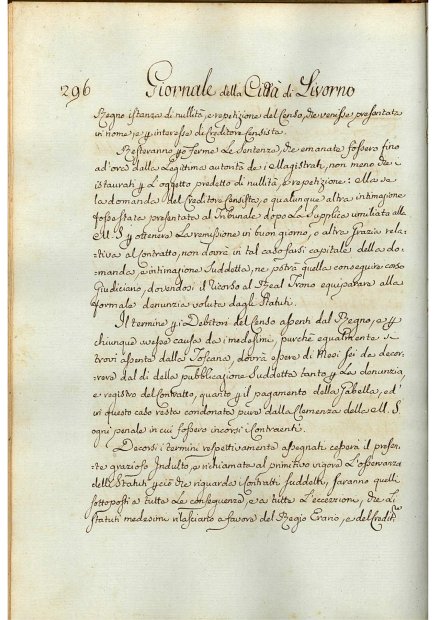 296 Giornale della Città di Livorno
Regno istanza di nullità, e repetizione del Censo, che venisse presentata
in nome, e p interesse di Creditore Censista.
Resteranno però ferme le Sentenze, che emanate fossero fino
ad'ora dalla Legittima autorità dei Magistrati, non meno che i
istaurati p L'oggetto predetto di nullità, e repetizione: Ma se
la domanda del Creditore Censista, o qualunque altra intimazione
fosse stata presentata al Tribunale dopo La Supplica umiliata alla
M. S. p ottenere La remissione in buon giorno, o altra Grazia rela-
tiva al Contratto, non dovrà in tal caso farsi capitale della do-
manda, e intimazione Suddetta, ne potrà quella conseguire corso
Giudiciario, dovendosi il Ricorso al Real Trono equiparare alla
formale denunzia voluta dagli Statuti.
Il termine p i Debitori del Censo assenti dal Regno, e p
chiunque avesse causa da medesimi, purchè egualmente si
trovi assente dalla Toscana, dovrà essere di Mesi Sei da decor-
rere dal dì della pubblicazione Suddetta tanto p La denunzia,
e registro del Contratto, quanto p il pagamento della Gabella, ed'
in questo caso resta condonata pure dalla Clemenza della M. S.
ogni penale in cui fossero incorsi i Contraenti.
Decorsi i termini respettivamente assegnati cesserà il presen-
te grazioso Indulto, e richiamata al primitivo vigore L'osservanza
delli Statuti p ciò che riguarda i Contratti Suddetti, saranno quelli
sottoposti a tutte Le conseguenze, e a tutte L'eccezioni, che li
statuti medesimi rilasciano a favore del Regio Erario, e del Credit.re